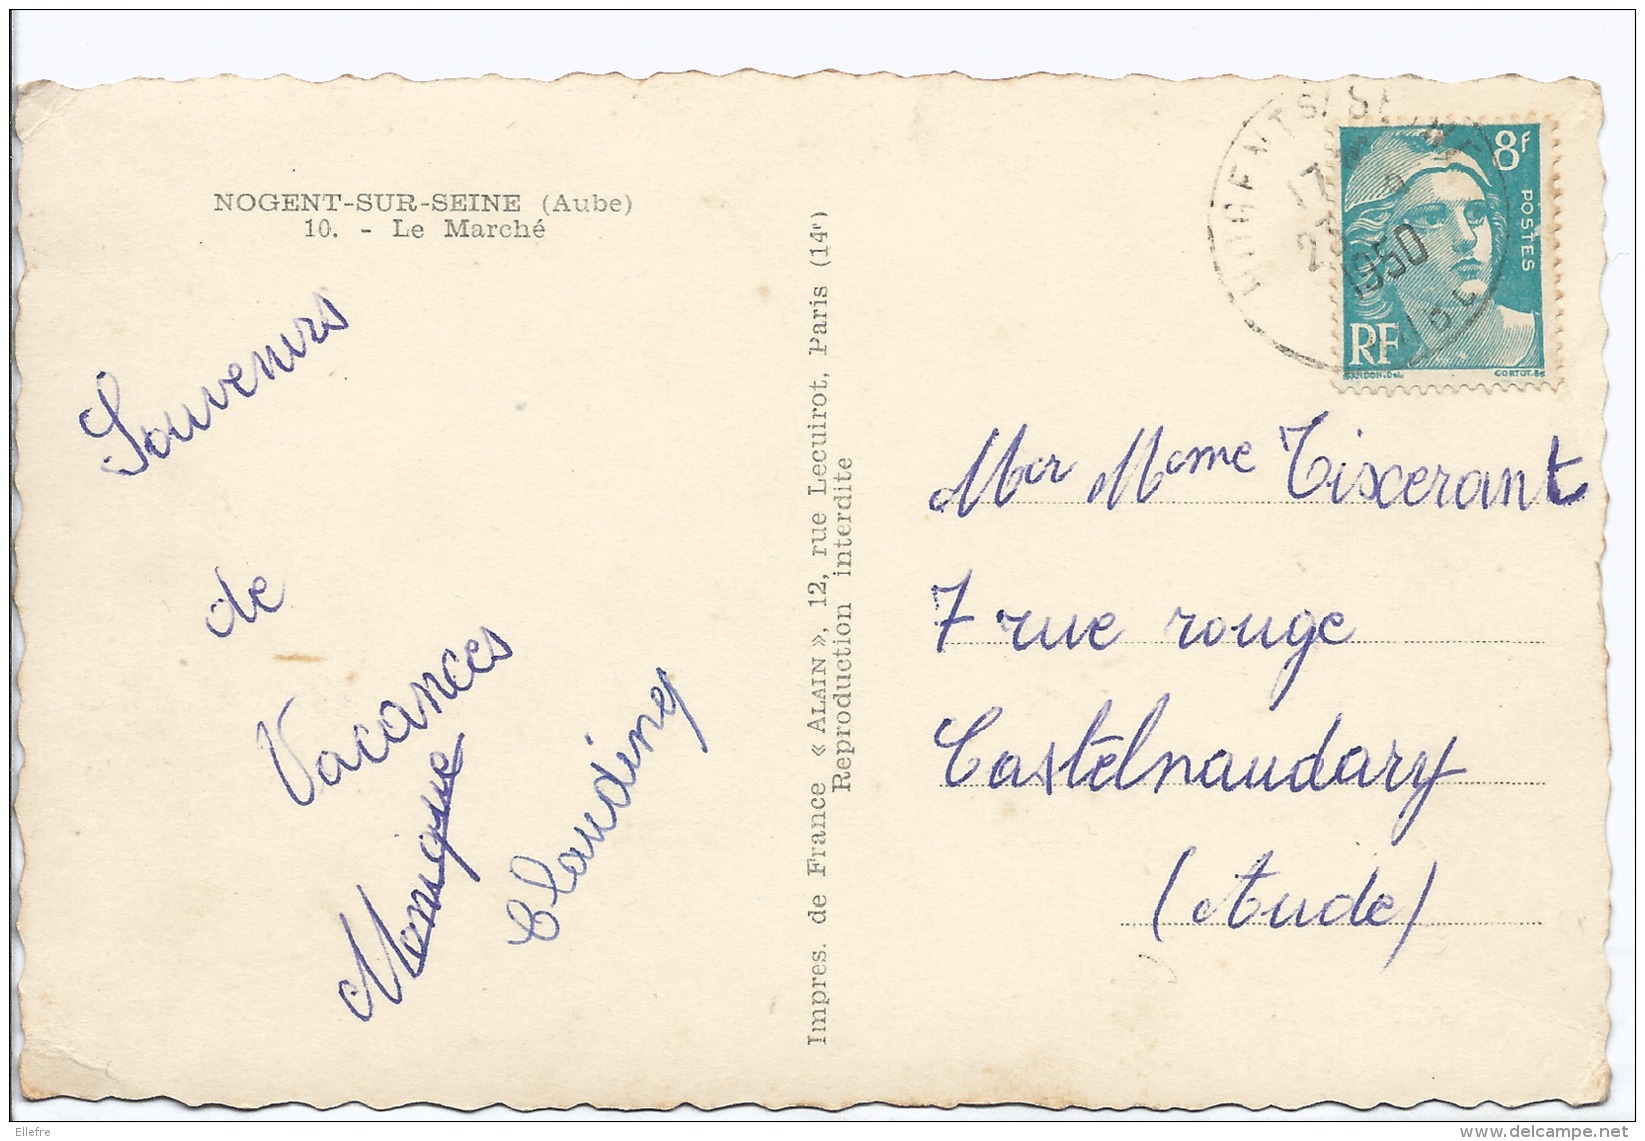 NOGENT-SUR-SEINE (Aube)
10. - Le Marché
Souvenirs
de
Vacances
Monique
Claudine
Impres. de France « ALAIN », 12, rue Lecuirot, Paris (14e)
Reproduction interdite
8f
POSTES
RF
GANDON.Del.
CORTOT.Sc
NOGENT S/ SEINE
17
1950
Mer Mome Tiscerant
7 rue rouge
Castelnaudary
(Aude)
Ellefre
www.delcampe.net